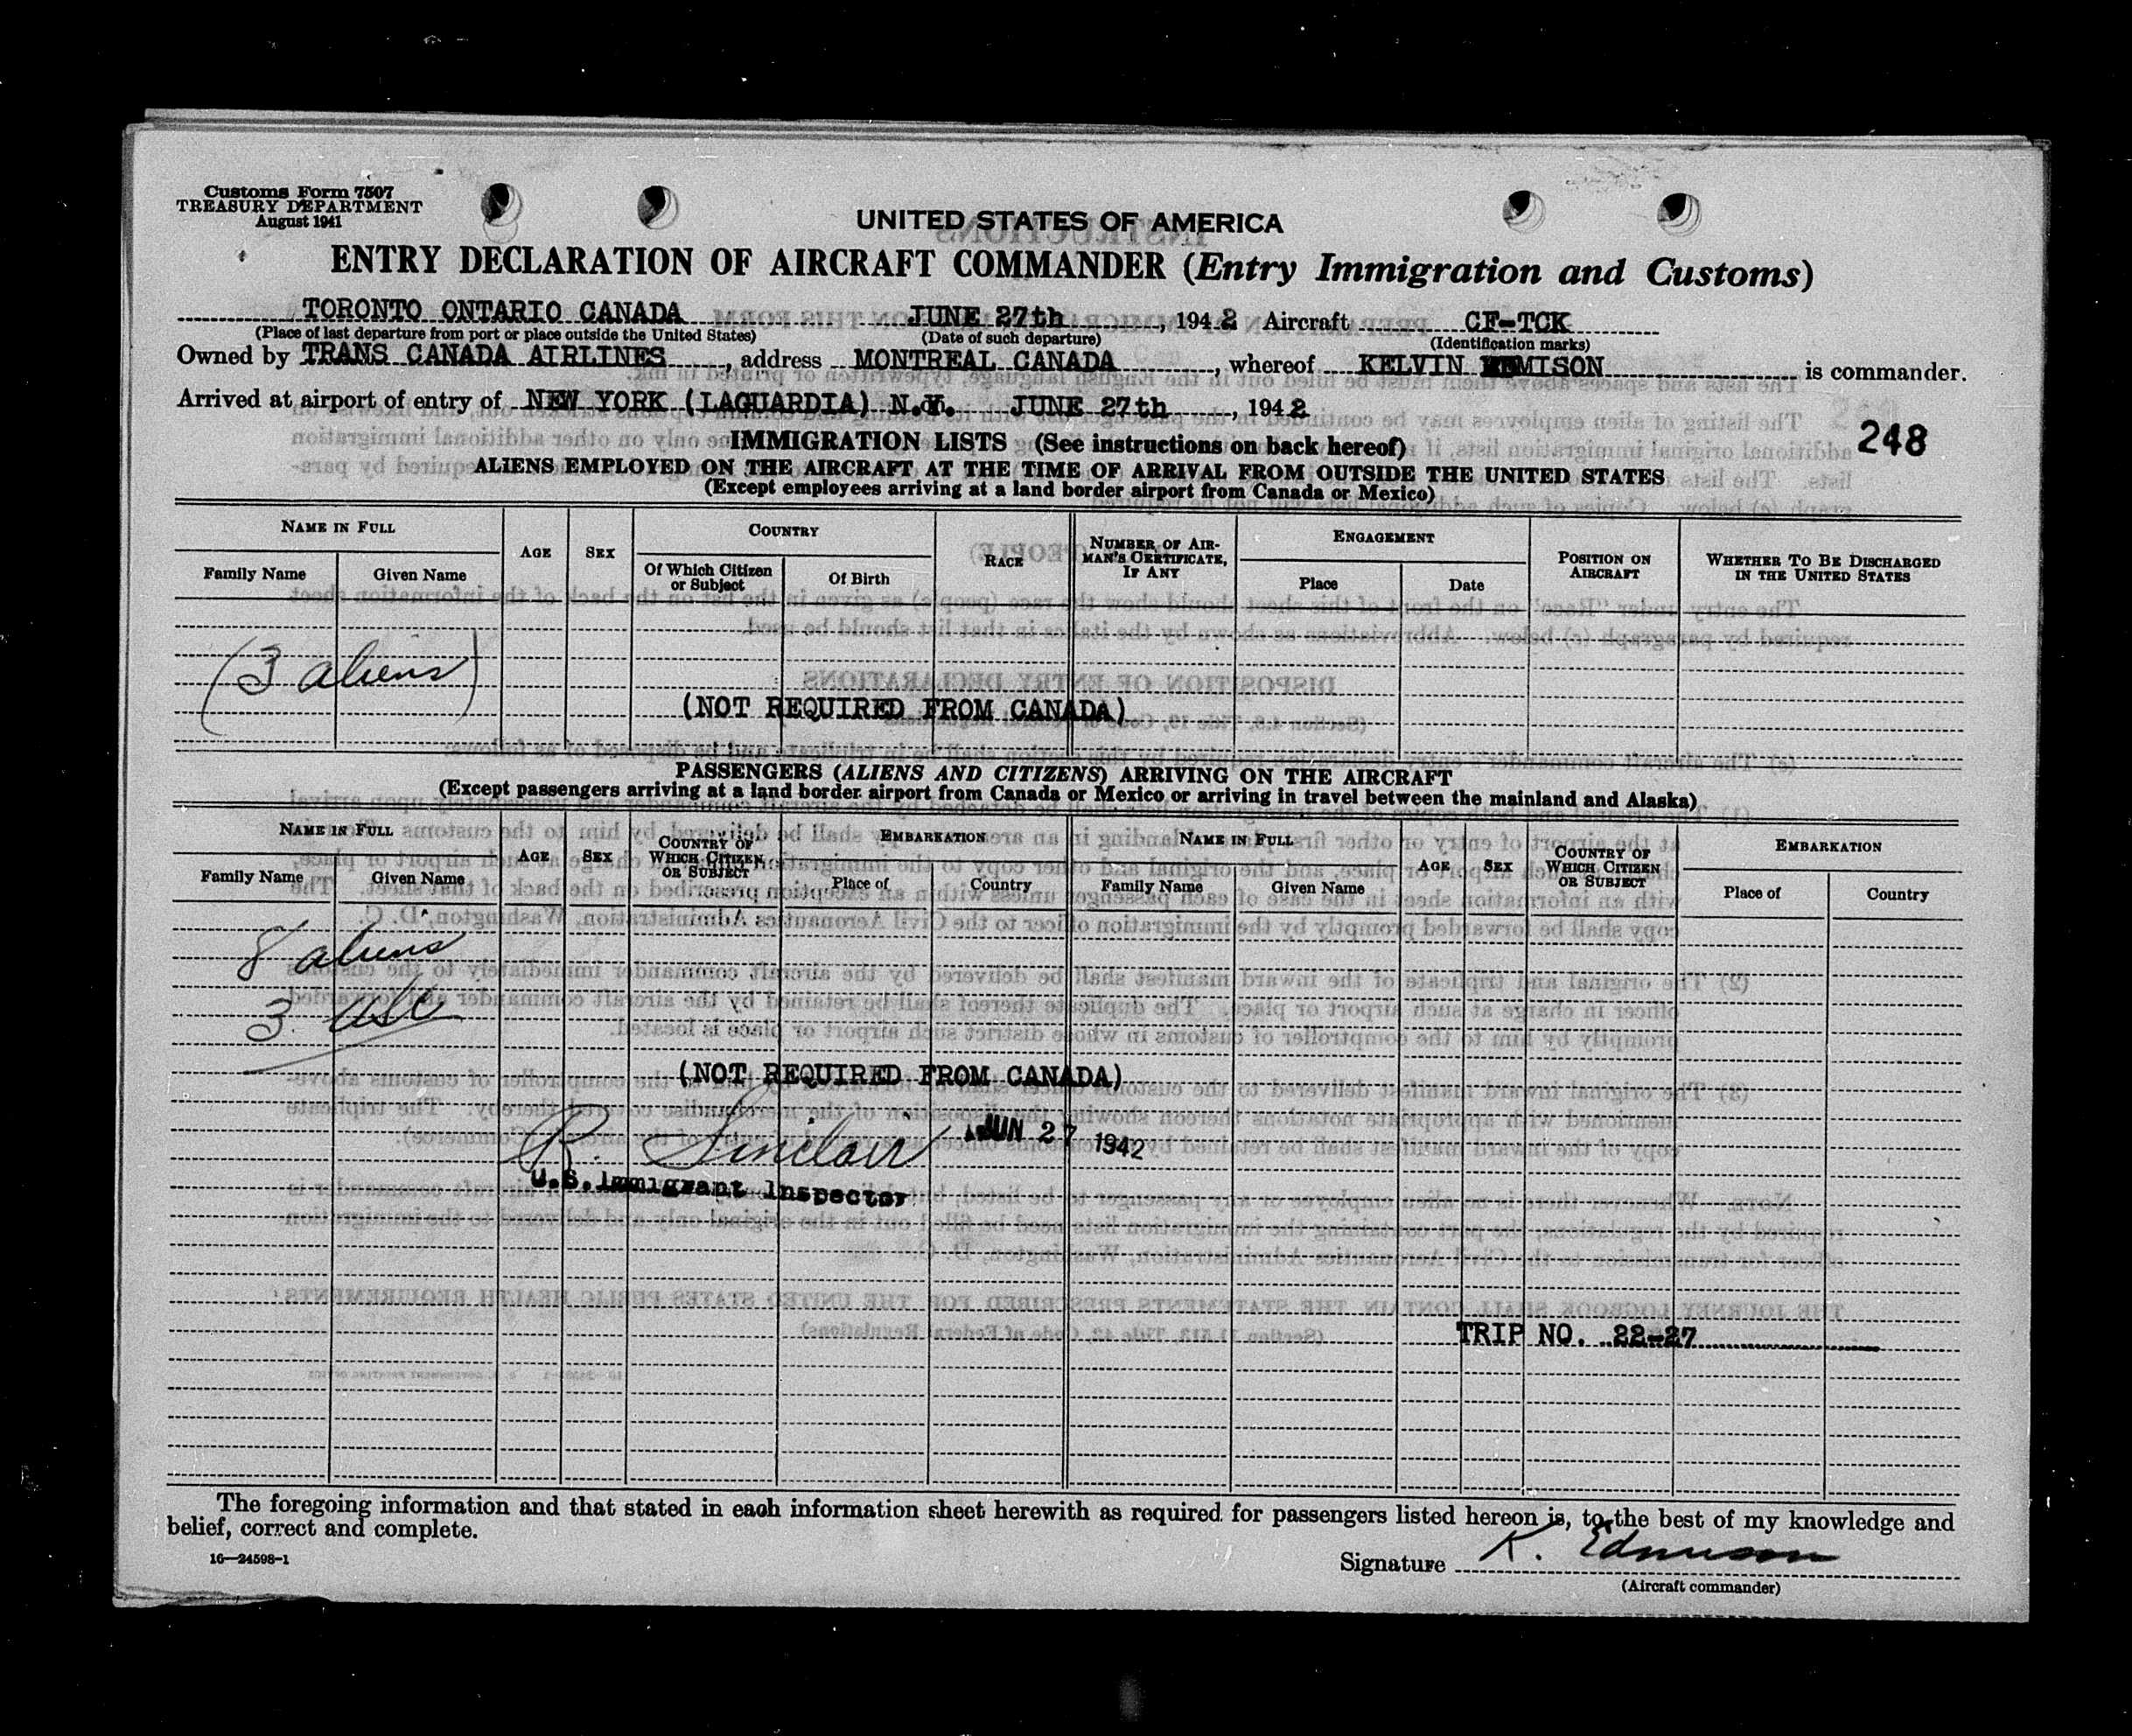 Customs Form 7507
TREASURY DEPARTMENT
August 1941
UNITED STATES OF AMERICA
ENTRY DECLARATION OF AIRCRAFT COMMANDER (Entry Immigration and Customs)
TORONTO ONTARIO CANADA JUNE 27th, 1942 Aircraft CF-TCK
(Place of last departure from port or place outside the United States) (Date of such departure) (Identification marks)
Owned by TRANS CANADA AIRLINES, address MONTREAL CANADA, whereof KELVIN EDMISON is commander.
Arrived at airport of entry of NEW YORK (LAGUARDIA) N.Y. JUNE 27th, 1942
IMMIGRATION LISTS (See instructions on back hereof) 248
ALIENS EMPLOYED ON THE AIRCRAFT AT THE TIME OF ARRIVAL FROM OUTSIDE THE UNITED STATES
(Except employees arriving at a land border airport from Canada or Mexico)
NAME IN FULL AGE SEX COUNTRY RACE NUMBER OF AIRMAN'S CERTIFICATE, IF ANY ENGAGEMENT POSITION ON AIRCRAFT WHETHER TO BE DISCHARGED IN THE UNITED STATES
Family Name Given Name Of Which Citizen or Subject Of Birth Place Date
(3 aliens)
(NOT REQUIRED FROM CANADA)
PASSENGERS (ALIENS AND CITIZENS) ARRIVING ON THE AIRCRAFT
(Except passengers arriving at a land border airport from Canada or Mexico or arriving in travel between the mainland and Alaska)
NAME IN FULL AGE SEX COUNTRY OF WHICH CITIZEN OR SUBJECT EMBARKATION NAME IN FULL AGE SEX COUNTRY OF WHICH CITIZEN OR SUBJECT EMBARKATION
Family Name Given Name Place of Country Family Name Given Name Place of Country
8 aliens
3 USC
(NOT REQUIRED FROM CANADA)
R. Sinclair JUN 27 1942
U.S. Immigrant Inspector
TRIP NO. 22-27
The foregoing information and that stated in each information sheet herewith as required for passengers listed hereon is, to the best of my knowledge and
belief, correct and complete.
16—24598-1
Signature K. Edmison
(Aircraft commander)